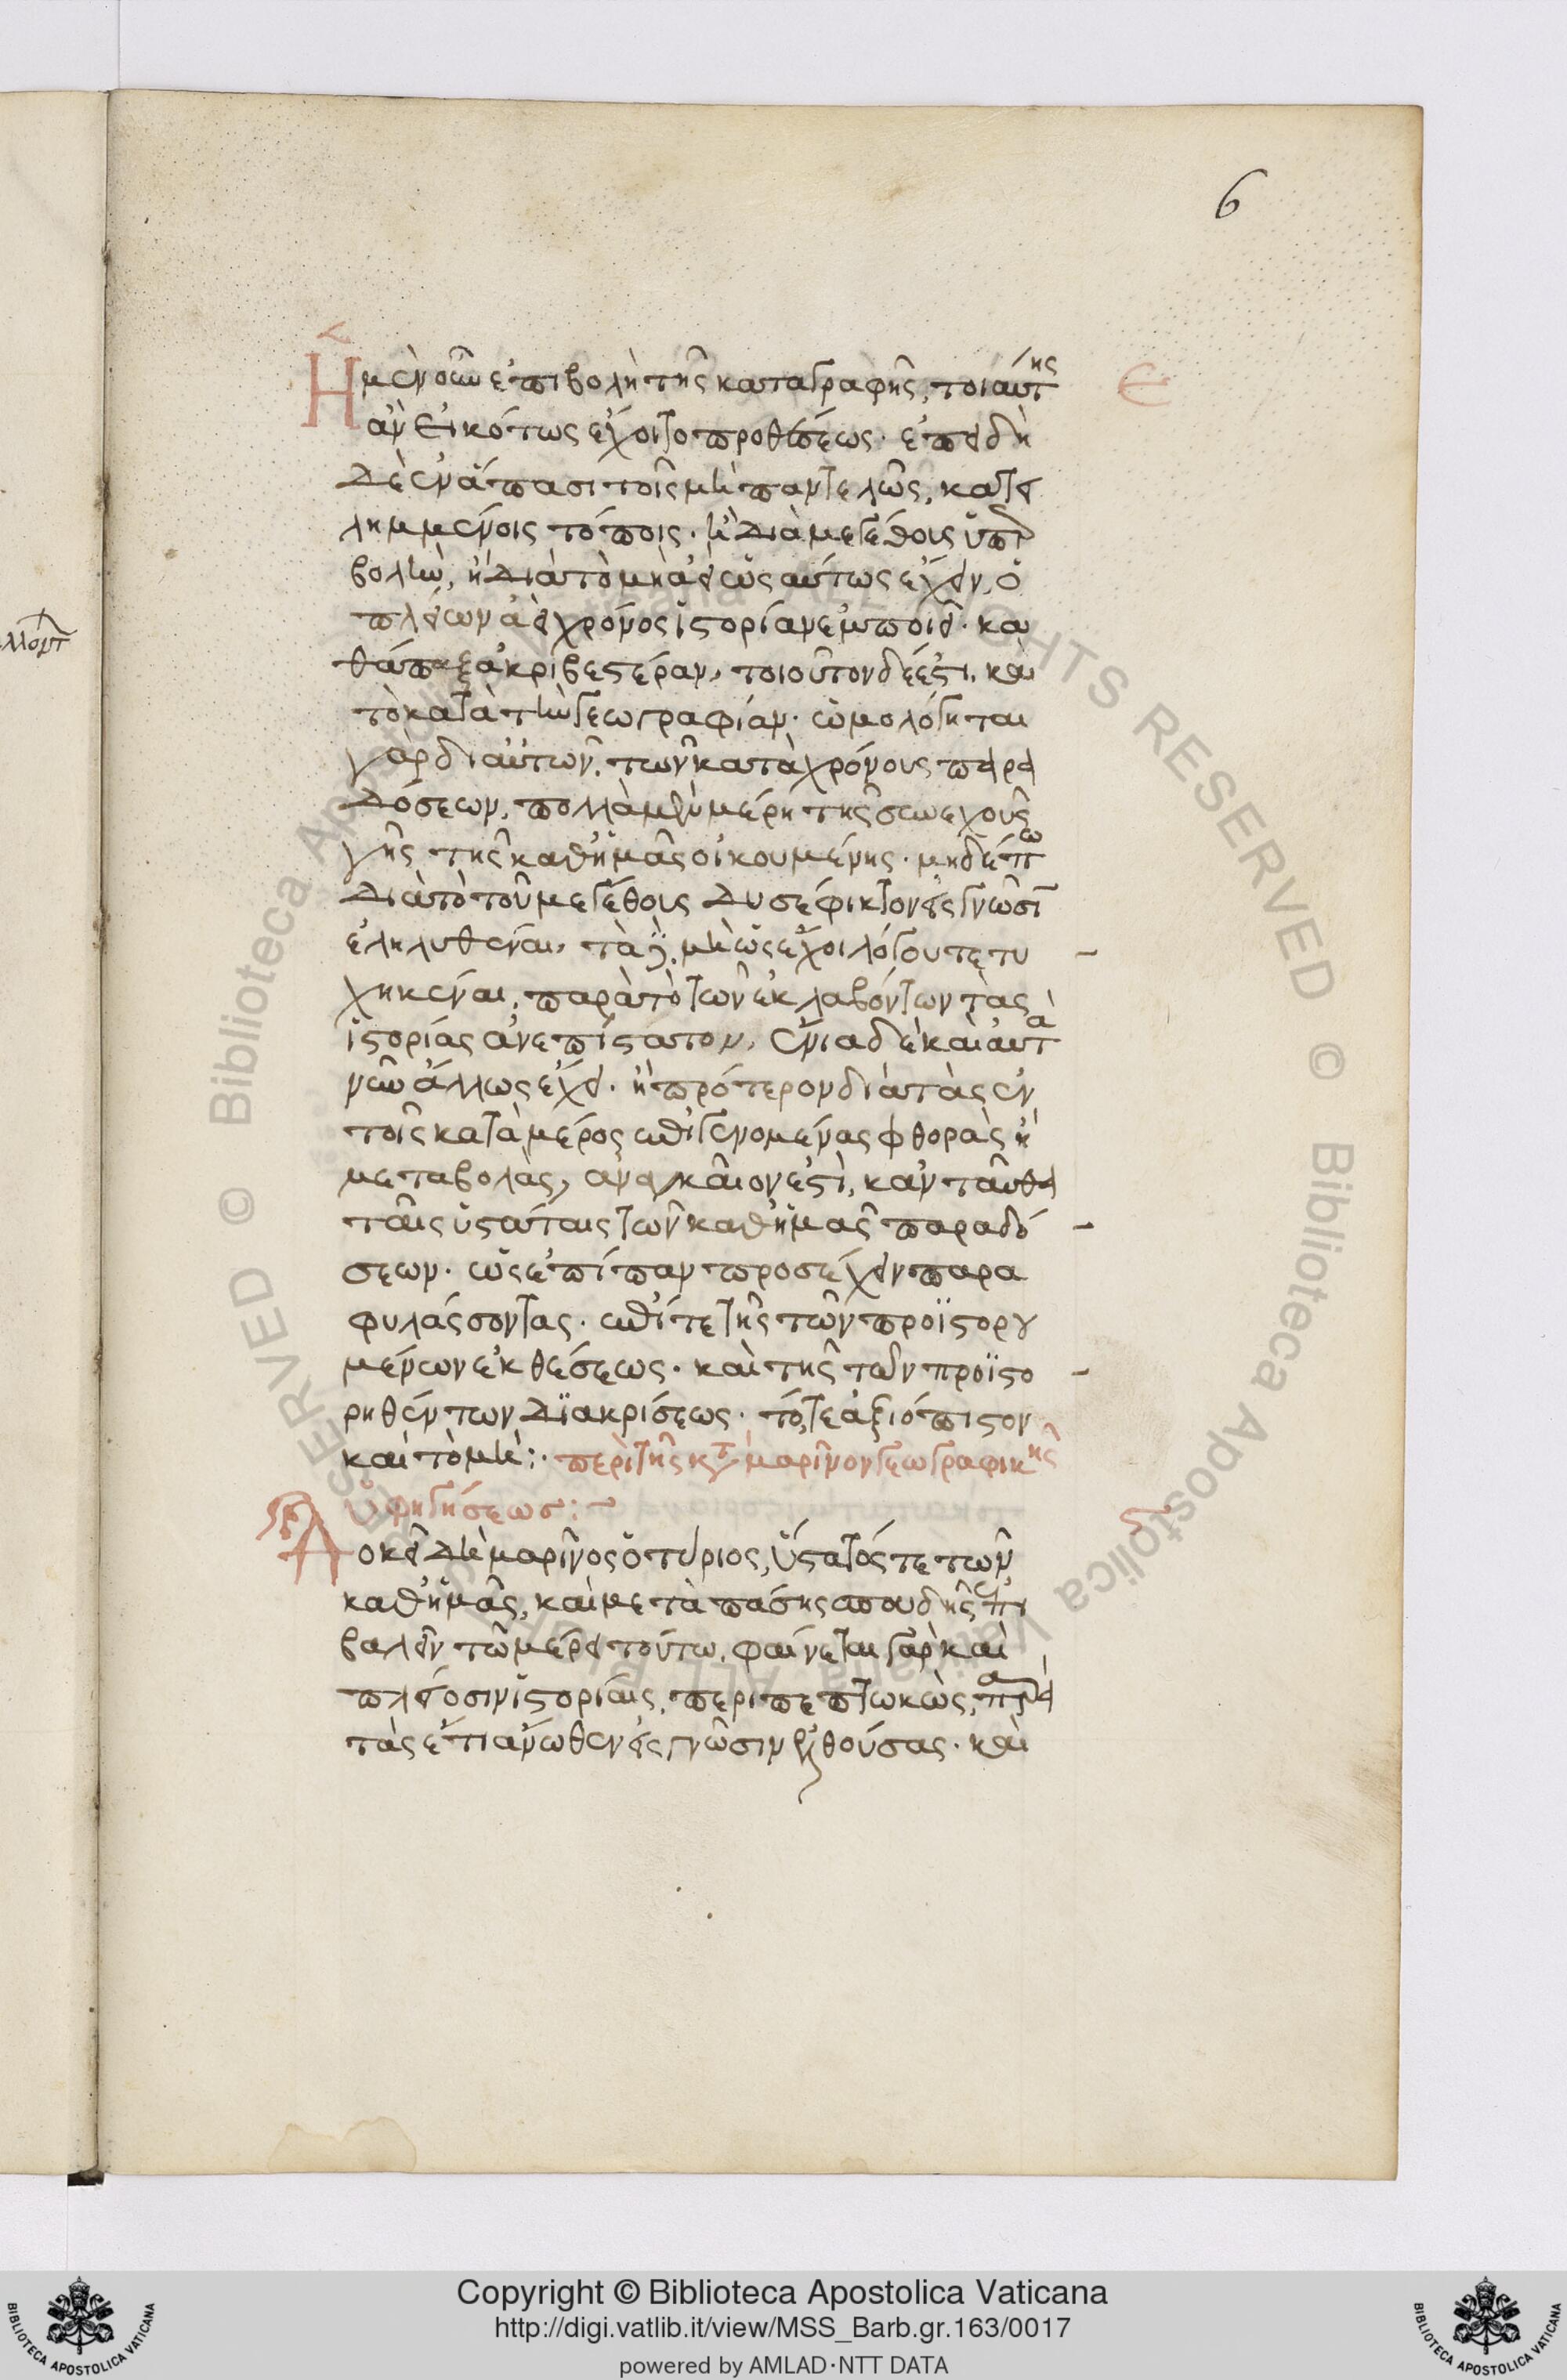 6
Ἡ μὲν οὖν ἐπιβολὴ τῆς καταγραφῆς, τοιαύτης
ε
ἂν εἰκότως ἔχοιτο προθέσεως· ἐπειδὴ
δὲ ἐν ἅπασι τοῖς μὴ παντελῶς, κατει
λημμένοις τόποις· ἢ διὰ μεγέθους ὑπερ
βολὴν, ἢ διὰ τὸ μὴ ἀεὶ ὡσαύτως ἔχειν, ὁ
πλείων ἀεὶ χρόνος ἱστορίαν ἐμποιεῖ· κα
θάπαξ ἀκριβεστέραν, τοιοῦτον δέ ἐστι, καὶ
τὸ κατὰ τὴν γεωγραφίαν· ὡμολόγηται
γὰρ δι αὐτῶν, τῶν κατὰ χρόνους παρα
δόσεων, πολλὰ μὲν μέρη τῆς συνεχοῦς
γῆς τῆς καθ ἡμᾶς οἰκουμένης· μηδέπω
διὰ τὸ τοῦ μεγέθους δυσέφικτον εἰς γνῶσιν
ἐληλυθέναι, τὰ δὲ, μὴ ὡς ἔχει λόγου τετυ
χηκέναι, παρὰ τὸ τῶν ἐκλαβόντων τὰς
ἱστορίας ἀνεπίστατον, ἔνια δὲ καὶ αὐτὰ
νῦν ἄλλως ἔχει· ἢ πρότερον διὰ τὰς ἐν
τοῖς κατὰ μέρος ἐπιγενομένας φθορὰς ἢ
μεταβολὰς, ἀναγκαῖον ἐστὶ, κἀνταῦθα
ταῖς ὑστάταις τῶν καθ ἡμᾶς παραδό
σεων· ὡς ἐπίπαν προσέχειν παρα
φυλάσσοντας· ἐπί τε τῆς τῶν προϊστορου
μένων ἐκθέσεως· καὶ τῆς τῶν προϊστο
ρηθέντων διακρίσεως· τό, τε ἀξιόπιστον
καὶ τὸ μή:· περὶ τῆς κατὰ μαρῖνον γεωγραφικῆς
ὑφηγήσεωσ:~
Δοκεῖ δὴ μαρῖνος ὁ τύριος, ὕστατός τε τῶν
ϛ
καθ ἡμᾶς, καὶ μετὰ πάσης σπουδῆς ἐπι
βαλεῖν τῶ μέρει τούτω, φαίνεται γὰρ καὶ
πλείοσιν ἱστορίαις, περιπεπτωκὼς, παρὰ
τὰς ἔτι ἄνωθεν εἰς γνῶσιν ἐλθούσας· καὶ
Copyright © Biblioteca Apostolica Vaticana
http://digi.vatlib.it/view/MSS_Barb.gr.163/0017
powered by AMLAD·NTT DATA